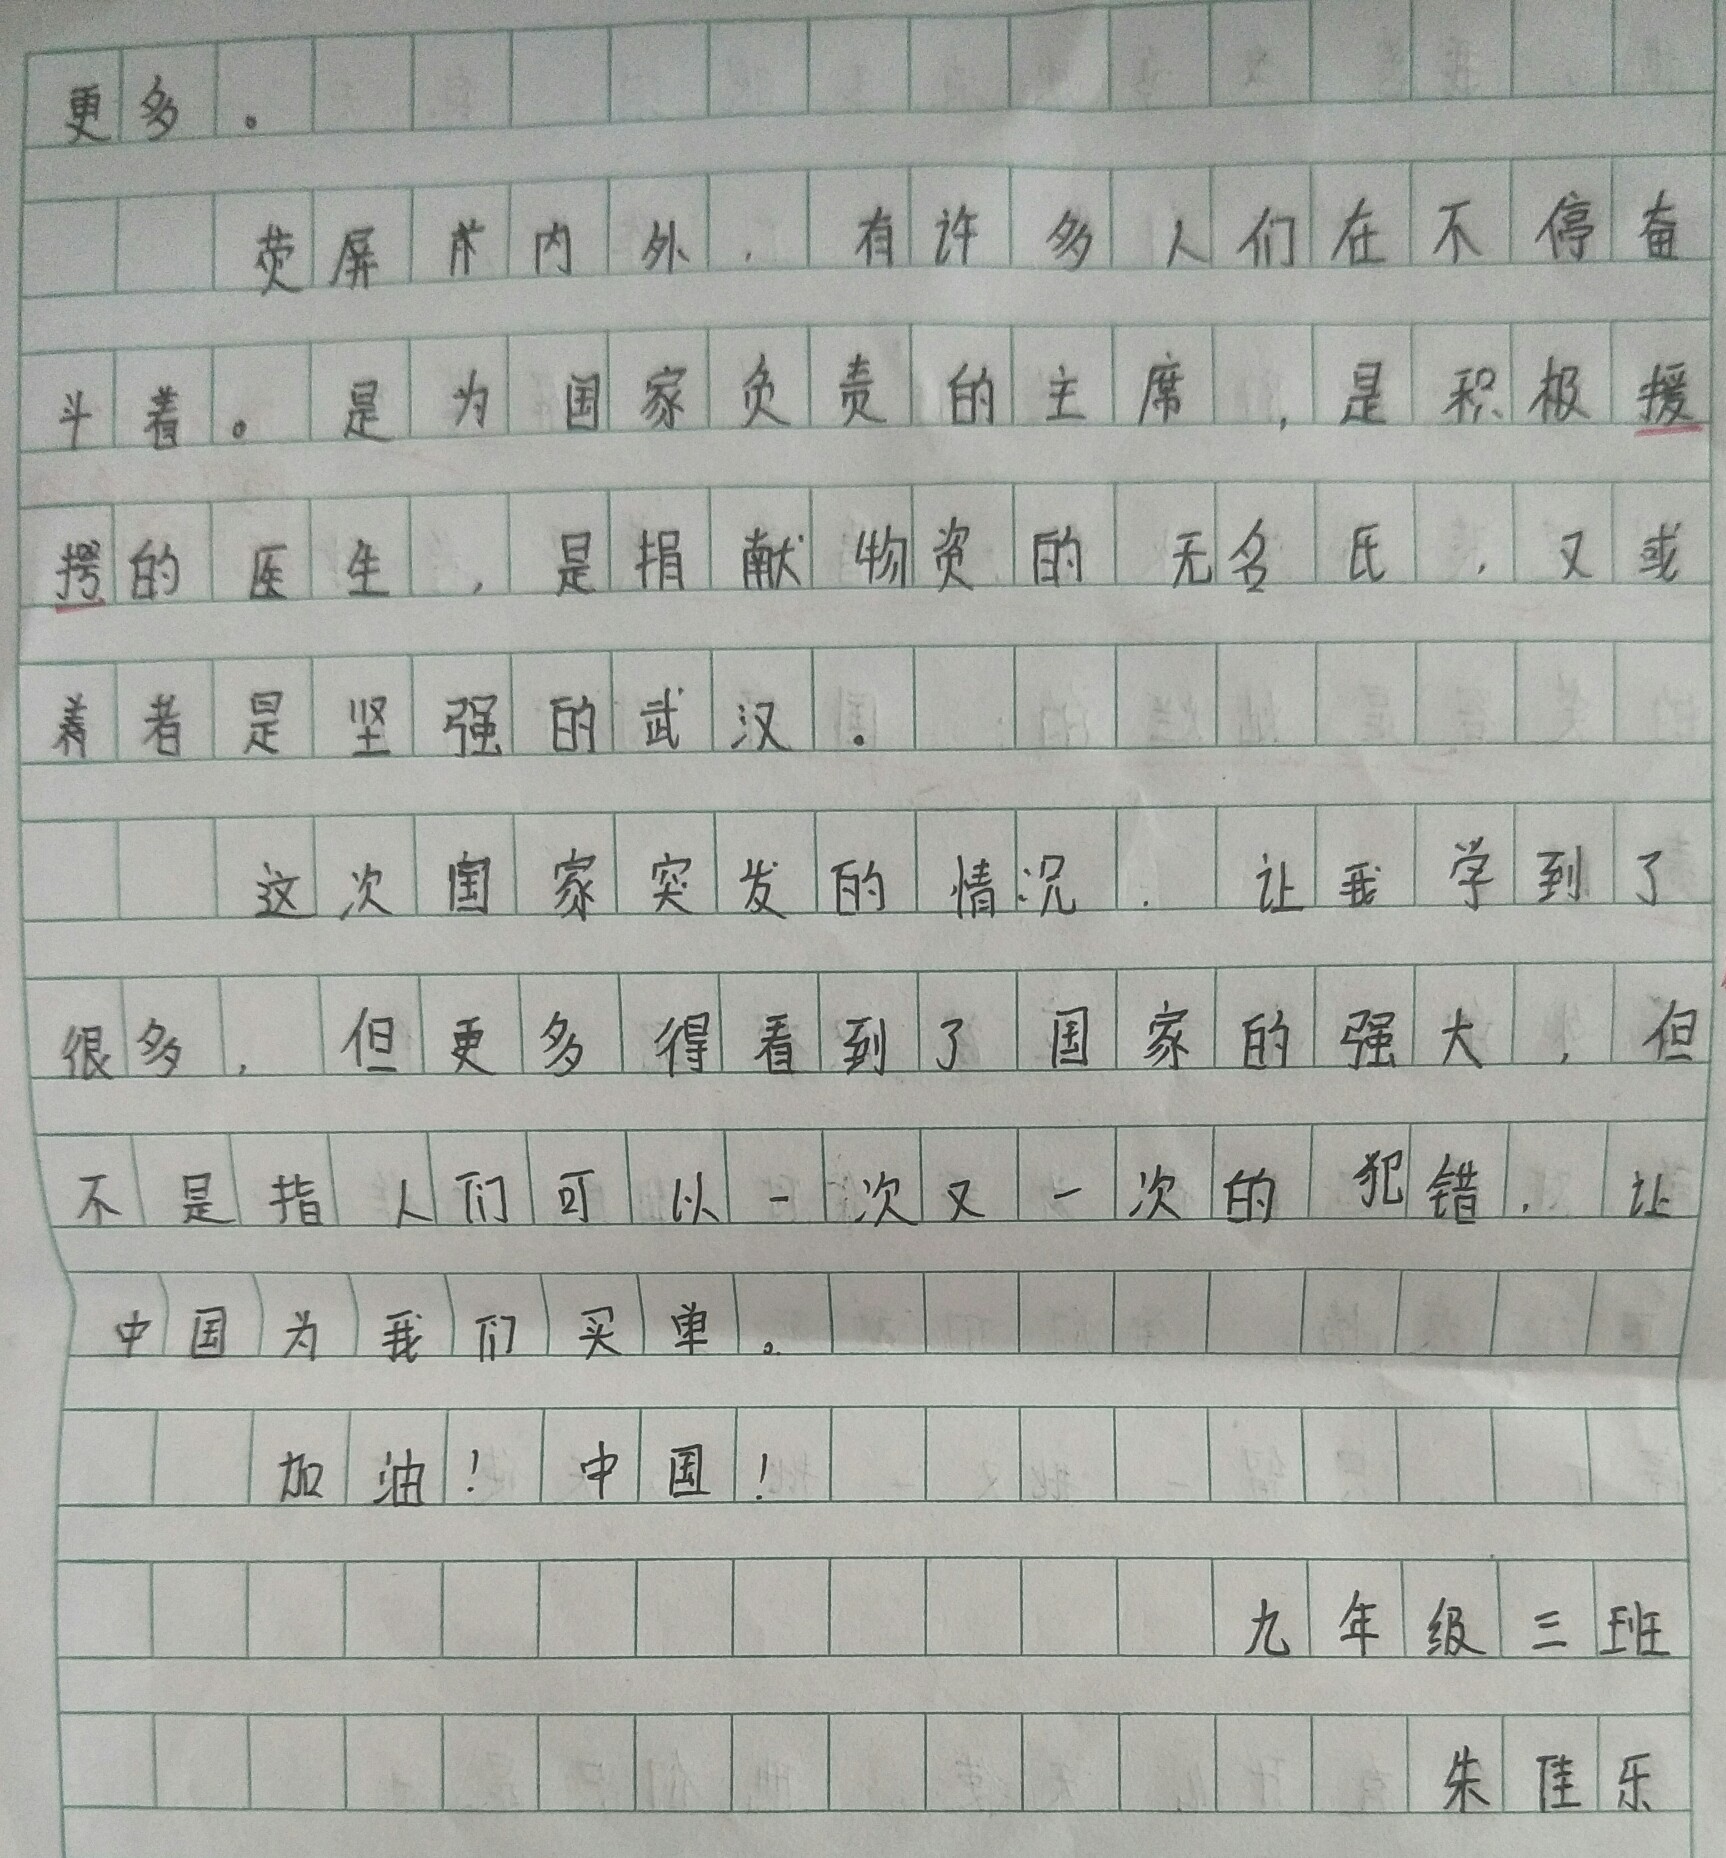 更多。
荧屏内外，有许多人们在不停奋
斗着。是为国家负责的主席，是积极援
的医生，是捐献物资的无名氏，又或
者是坚强的武汉。
这次国家突发的情况，让我学到了
很多，但更多得看到了国家的强大，但
不是指人们可以一次又一次的犯错，让
中国为我们买单。
加油！中国！
九年级三班
朱佳乐